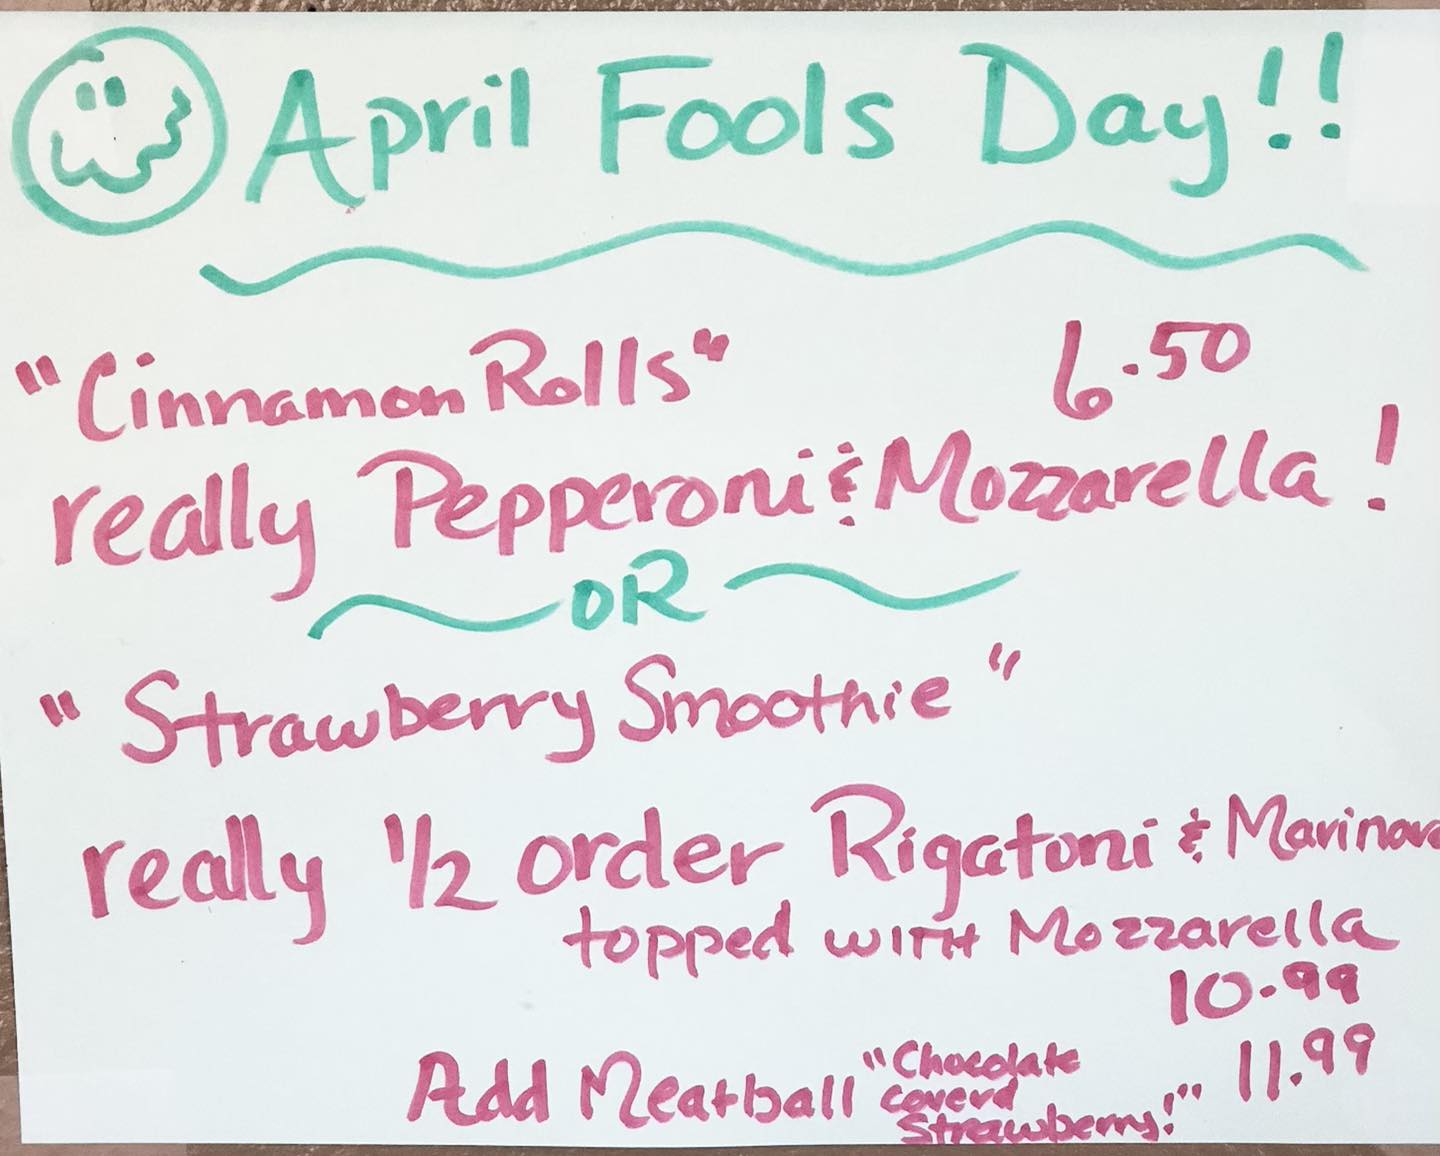 April Fools Day!!
"Cinnamon Rolls" 6.50
really Pepperoni & Mozzarella!
OR
"Strawberry Smoothie"
really 1/2 order Rigatoni & Marinara
topped with Mozzarella
10.99
Add Meatball "Chocolate coverd Strawberry!" 11.99